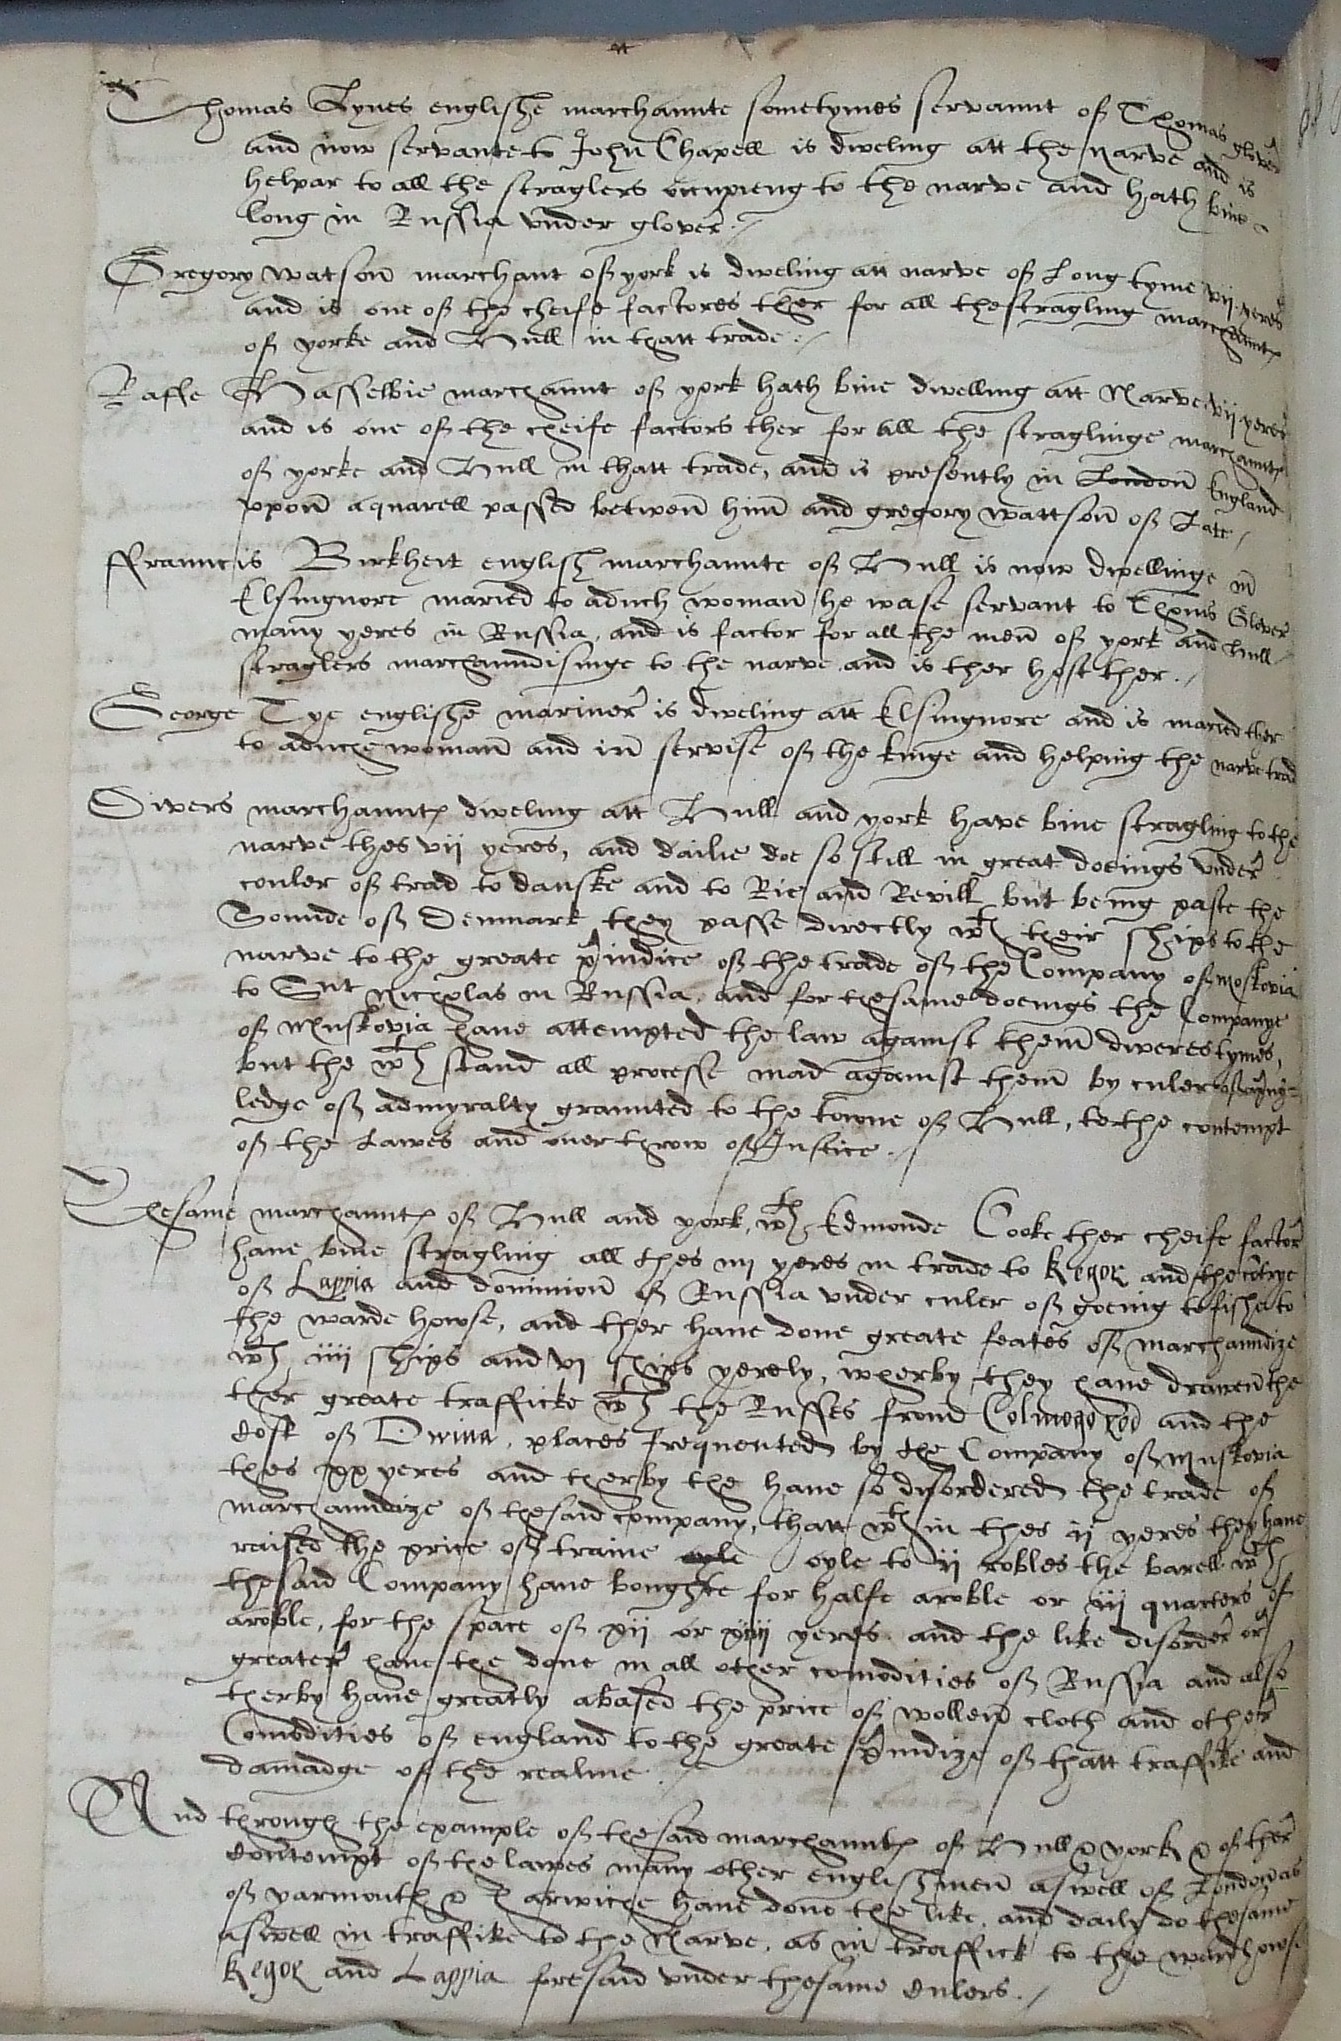 Thomas Lynes englishe marchaunte sometymes servaunt of Thomas glover
and now servante to John Chapell is dweling att the Narve and is
helpar to all the straglers occupieng to the narve and hath bine
long in Russia under glover
Gregory Watson marchant of york is dweling att narve of Long tyme vii yeres
and is one of the cheife factores ther for all the stragling marchauntes
of yorke and Hull in thatt trade
Raffe Hasselbie marchaunt of york hath bine dwelling att Narve vii yeres
and is one of the cheife factors ther for all the straglinge marchauntes
of yorke and Hull in thatt trade, and is presently in London England
vpon a quarell passed betwen him and gregory wattson of Late
ffrauncis Birkheit english marchaunte of Hull is now dwellinge in
Elsingnore maried to a duch woman he wase servant to Thoms Glover
many yeres in Russia, and is factor for all the men of york and hull
straglers marchaundisinge to the narve and is ther host ther
George Tye englishe mariner is dweling att Elsingnore and is maried ther
to a duche woman and in servise of the kinge and helping the narve trad
Divers marchauntes dweling att Hull and york have bine stragling to the
narve thes vii yeres, and dailie doe so still in great doeings vnder
couler of trad to danske and to Rie and Revill but being paste the
Sounde of Denmark they passe directly wth their ships to the
narve to the greate preiudice of the trade of the Company of moskovia
to Snt Nicholas in Russia, and for the same doeings the Companye
of Muskovia have attempted the law against them diveres tymes,
but the wth stand all processe mad against them by culer of a priuy-
ledge of admyralty graunted to the towne of Hull, to the contempt
of the Lawes and over throw of Justice
The same marchauntes of Hull and york, wth Edmonde Cooke ther cheife factor
have bine stragling all thes iiii yeres in trade to Kegor and the contrye
of Lappia and dominion of Russia vnder culer of goeing to fishe to
the warde howse, and ther have done greate feates of marchaundize
wth iiii ships and vi ships yerely, wherby they have drawen the
ther greate trafficke wth the Russes from Colmogorod and the
cost of Dwina, places frequented by the Company of Muskovia
thes xx yeres and therby the have so disordered the trade of
marchaundize of the said company, thatt wth in thes ii yeres they have
raised the price of traine oyle to ii robles the barell wch
the said Company have boughte for halfe a roble or iii quarters of
a roble, for the space of xii or xiiii yeres and the like disorder or
greater have the done in all other comodities of Russia and also
therby have greatly abased the price of wollen cloth and other
Comodities of england to the greate preiudize of thatt traffike and
damadge of the realme
And through the example of the said marchauntes of Hull & york & of ther
contempt of the lawes many other englishmen aswell of London as
of yarmouth & Harwiche have done the like, and daily do the same
aswell in traffike to the Narve, as in traffick to the wardhowse
Kegor and Lappia foresaid vnder the same culers